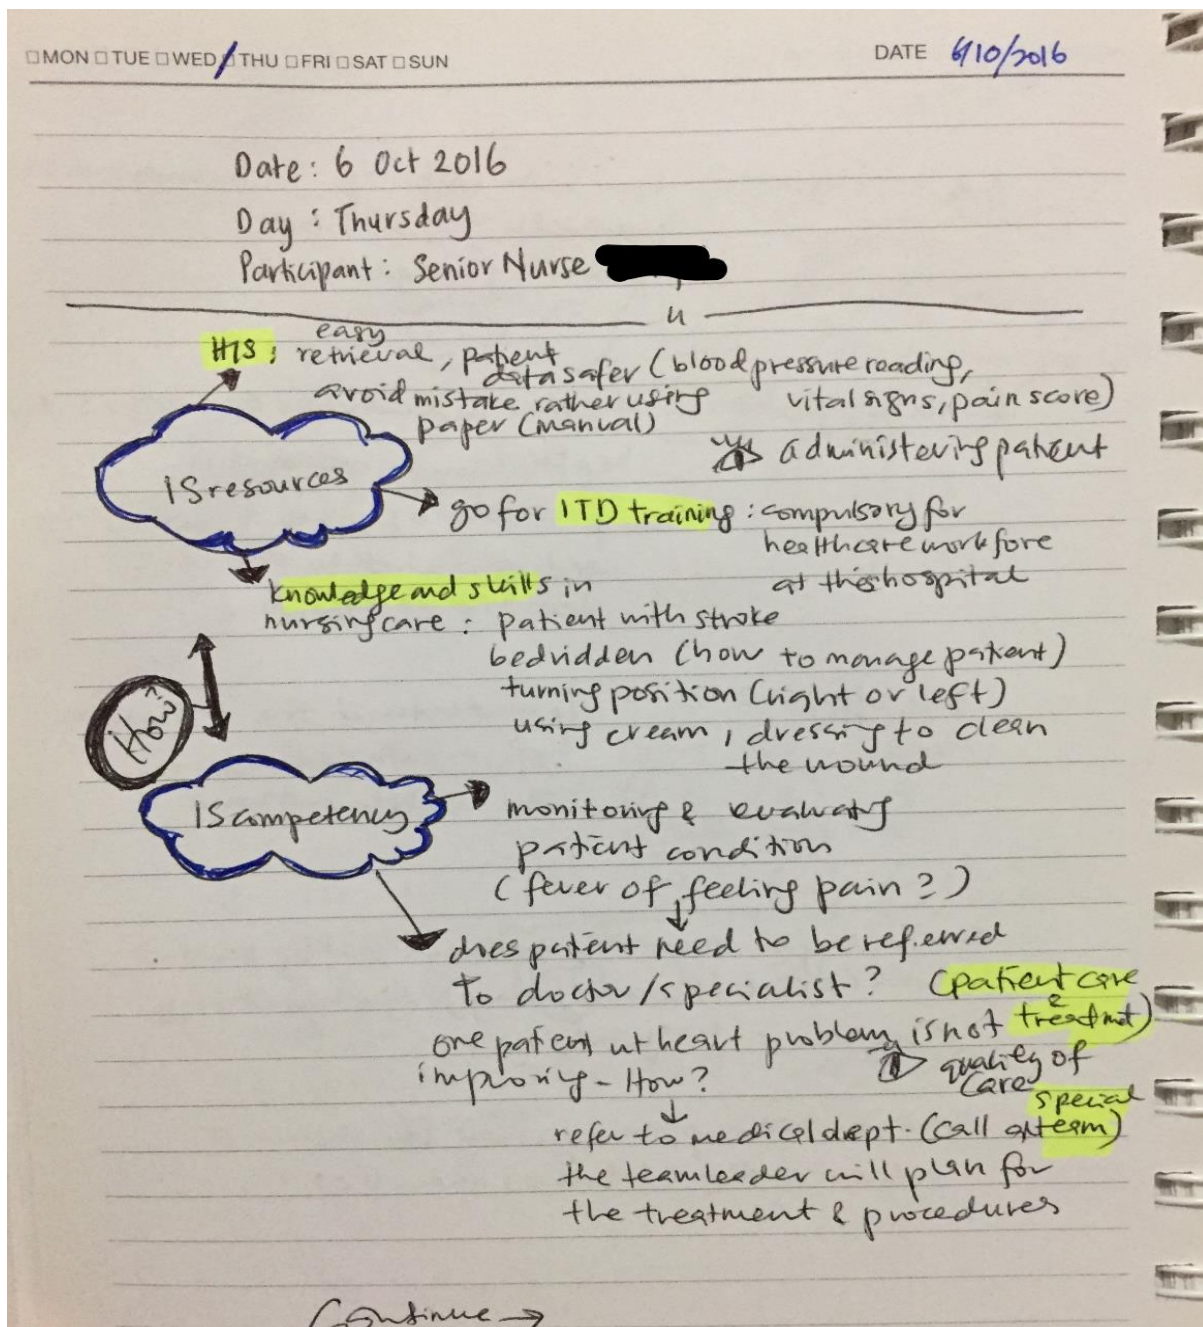 MON TUE WED THU FRI SAT SUN
DATE 6/10/2016
Date: 6 Oct 2016
Day: Thursday
Participant: Senior Nurse
HIS: easy retrieval, patient data safer (blood pressure reading, vital signs, pain score)
avoid mistake rather using paper (manual)
administering patient
IS resources
go for ITD training: compulsory for
healthcare workfore
at this hospital
knowledge and skills in
nursing care: patient with stroke
bedridden (how to manage patient)
turning position (right or left)
using cream, dressing to clean
the wound
How?
IS competency
monitoring & evaluating
patient condition
(fever of feeling pain?)
does patient need to be referred
to doctor/specialist? (patient care
& treatmnt)
one patient heart problem is not
improving - How?
quality of
care
refer to medical dept. (call special
team)
the teamleader will plan for
the treatment & procedures
Continue →